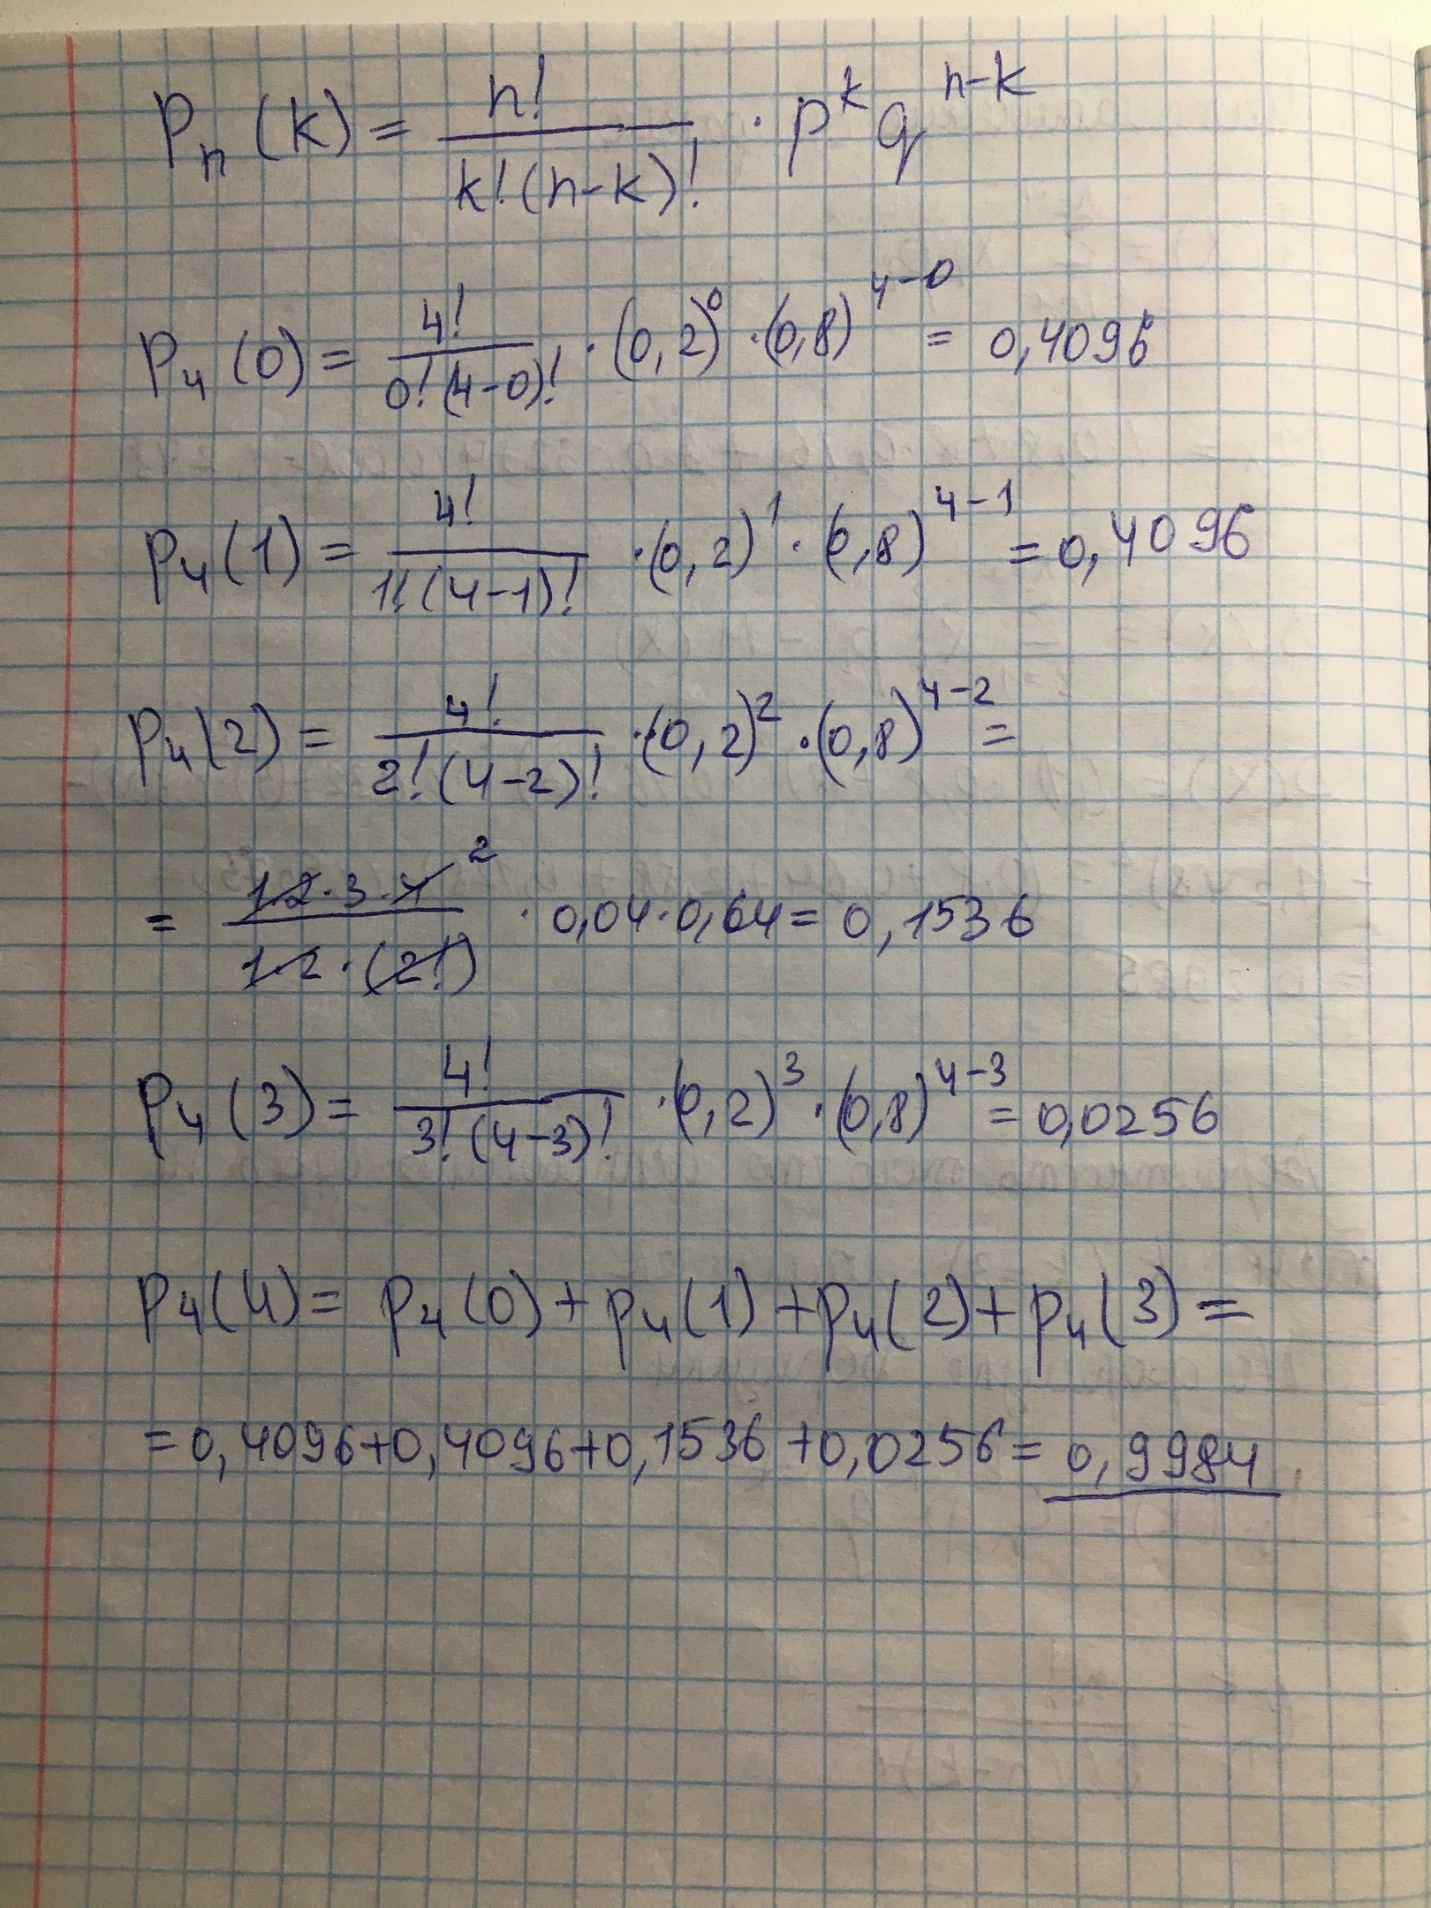 Pn(k) = n! / k!(n-k)! · p^k q^n-k
P4(0) = 4! / 0!(4-0)! · (0,2)^0 · (0,8)^4-0 = 0,4096
P4(1) = 4! / 1!(4-1)! · (0,2)^1 · (0,8)^4-1 = 0,4096
P4(2) = 4! / 2!(4-2)! · (0,2)^2 · (0,8)^4-2 =
= 1·2·3·4 2 / 1·2·(2!) · 0,04·0,64 = 0,1536
P4(3) = 4! / 3!(4-3)! · (0,2)^3 · (0,8)^4-3 = 0,0256
P4(4) = P4(0) + P4(1) + P4(2) + P4(3) =
= 0,4096+0,4096+0,1536+0,0256 = 0,9984